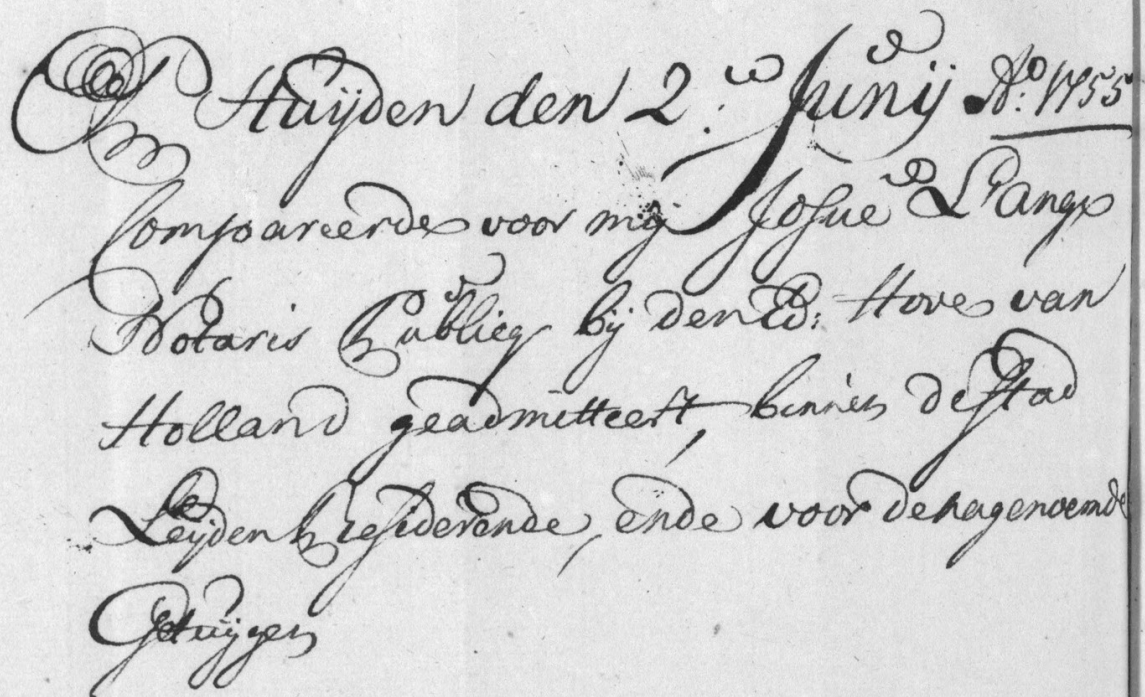 Op Huijden den 2.en Junij Ao. 1755
Compareerde voor mij Josue L'Ange
Notaris Publicq bij den Ed: Hove van
Holland geadmitteert, binnen de stad
Leijden Residerende, ende voor de nagenoemde
Getuijgen